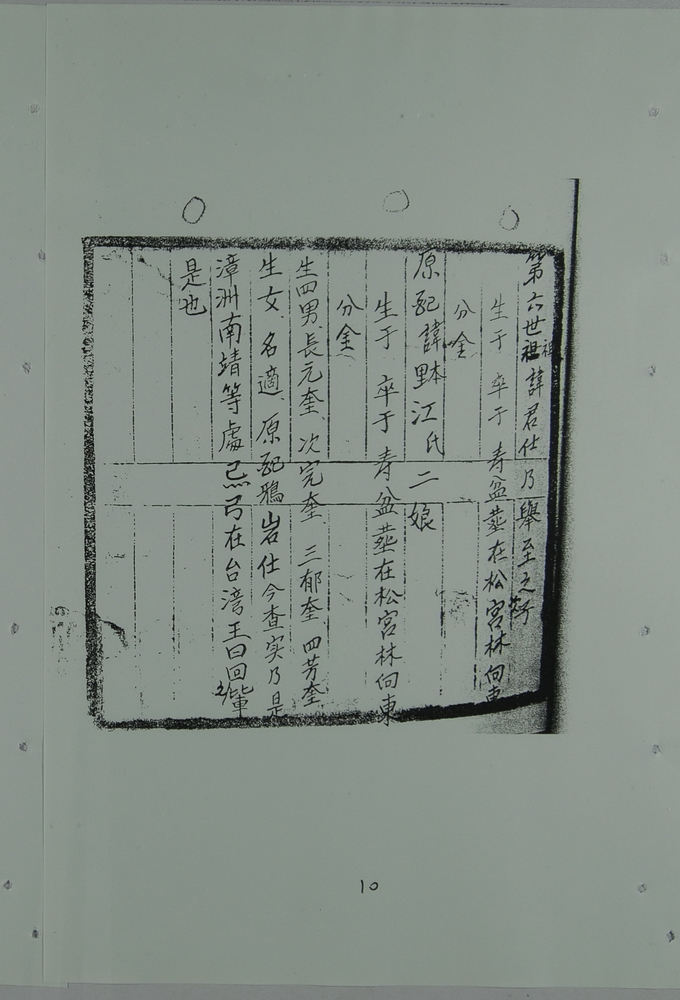 第六世祖祖諱君仕乃舉至之子
生于 卒于 寿 盆塟在松宮林向東
分金
原配諱 江氏二娘
生于 卒于 寿 盆塟在松宮林向東
分金
生四男、長元奎、次完奎、三郁奎、四芳奎
生女、名適、原配鴉岩仕今查实乃是
漳洲南靖等處 在台湾王曰回
是也
10